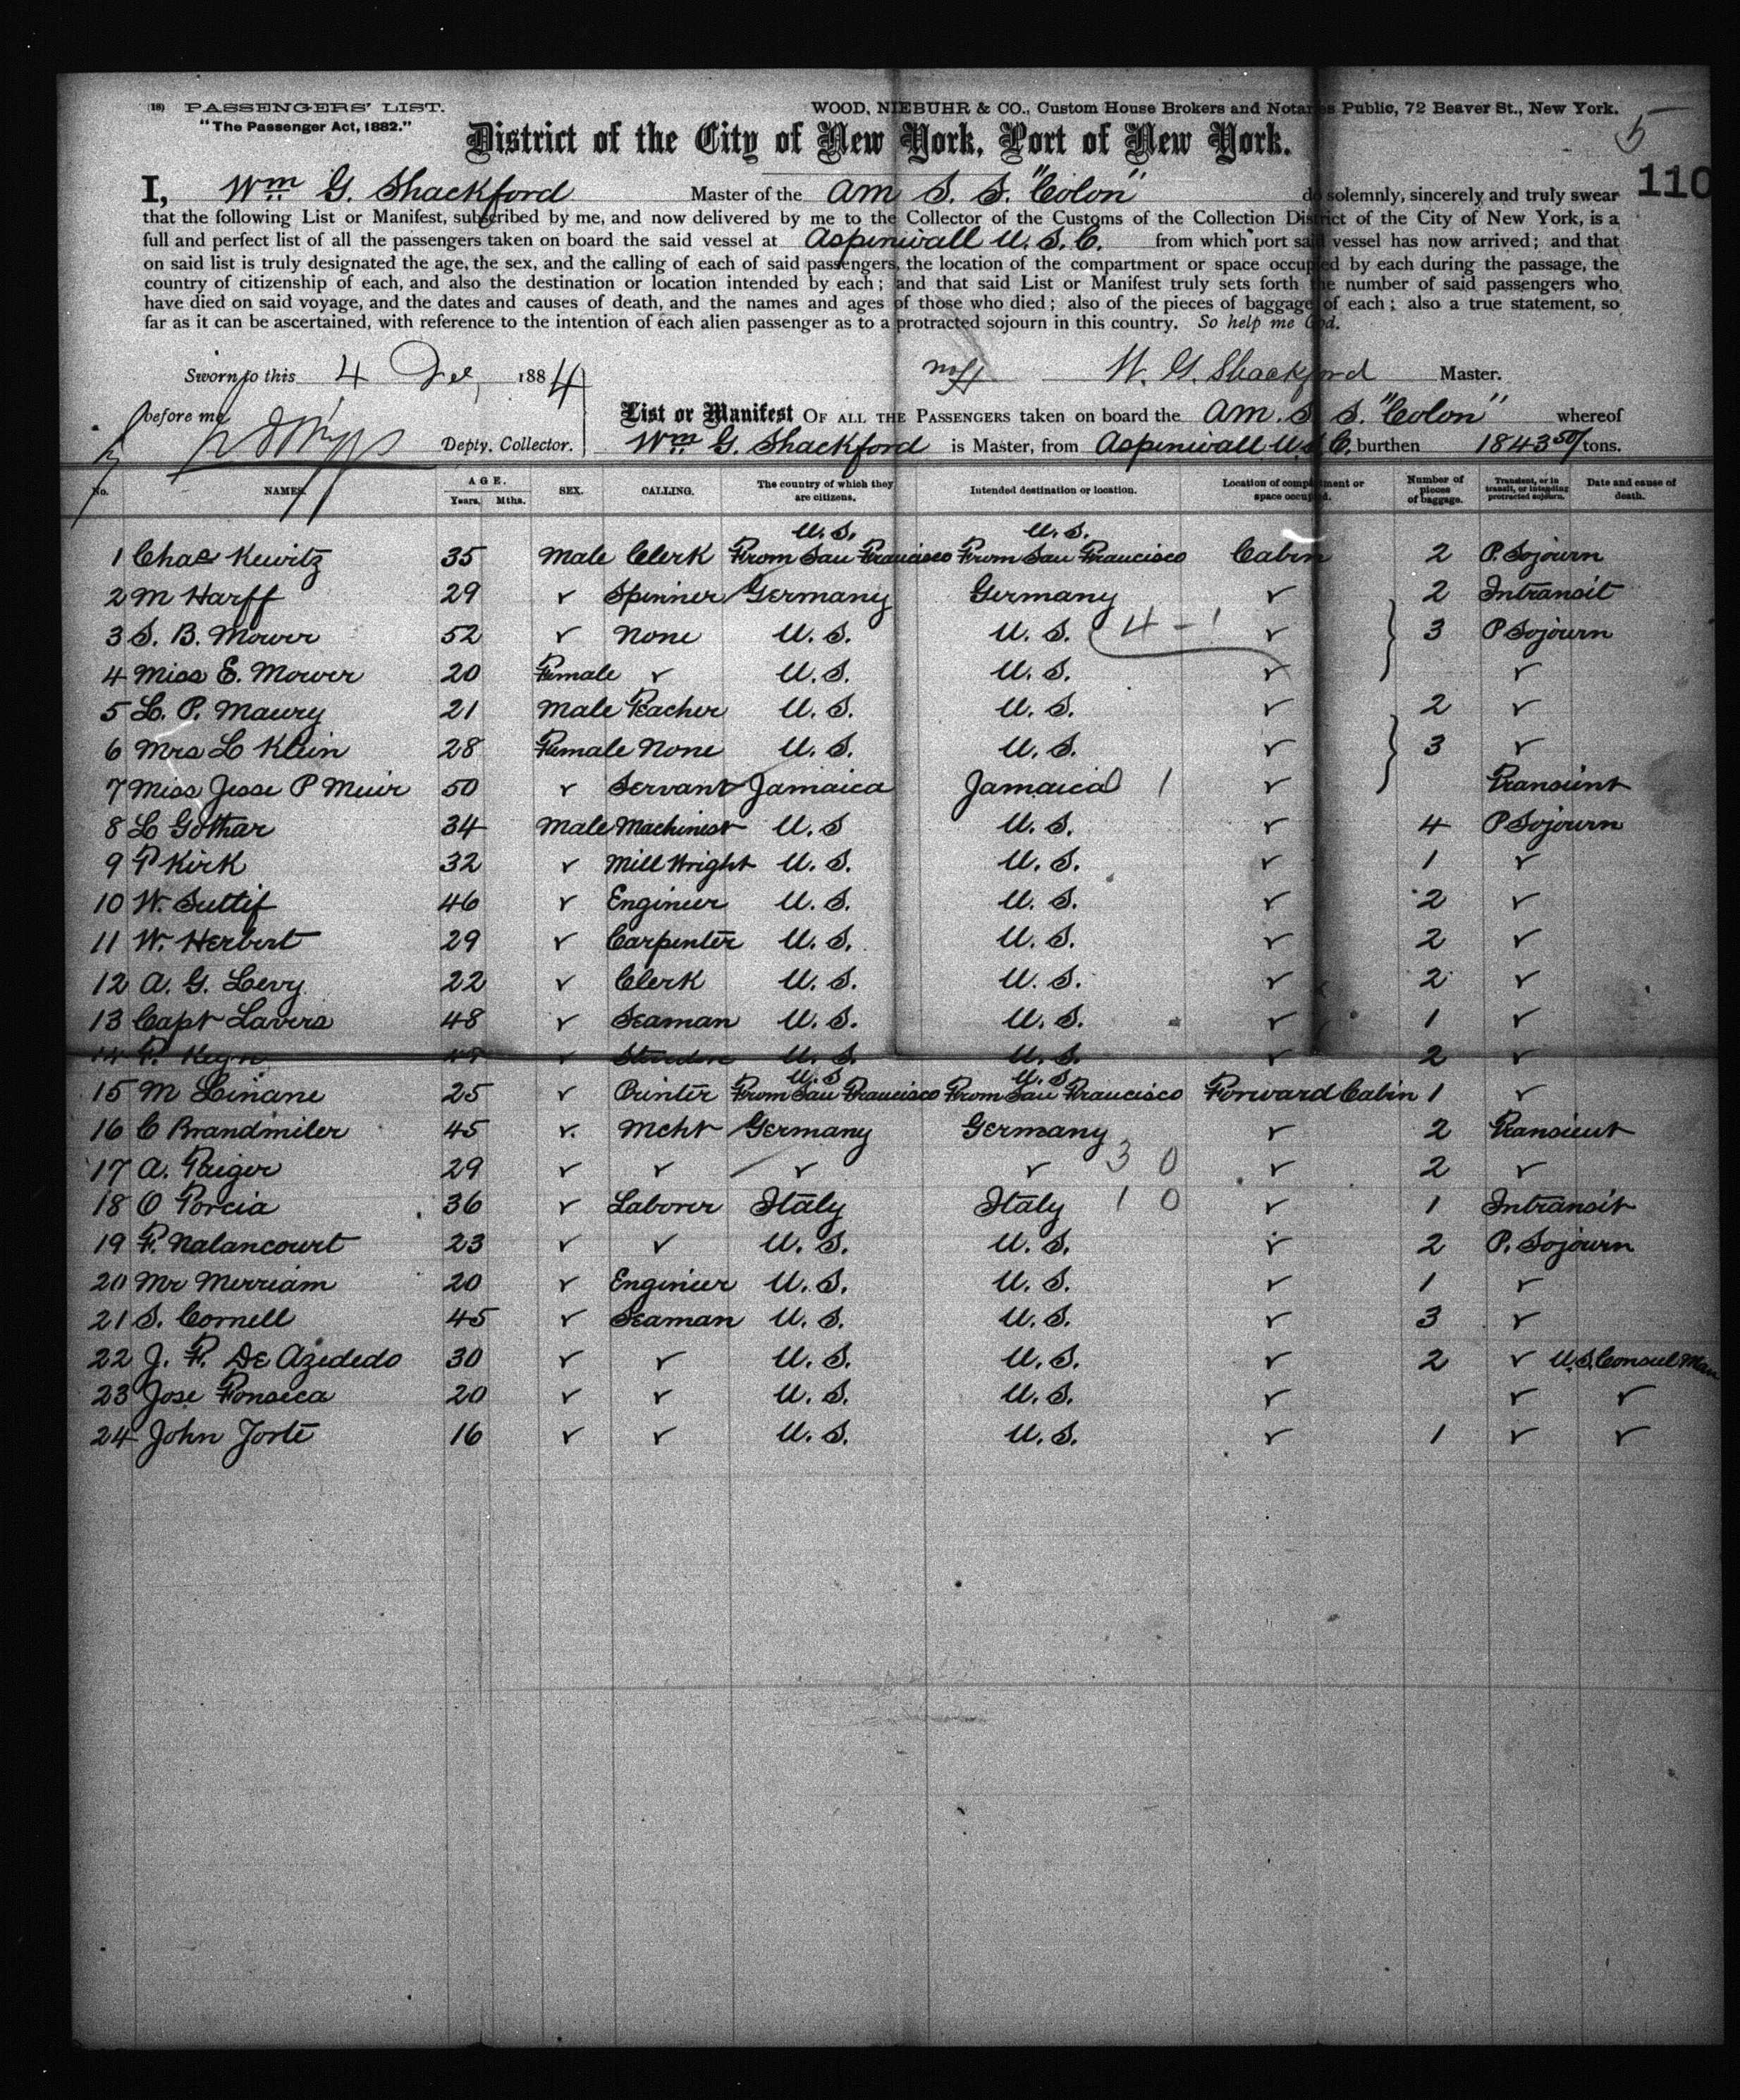 (18) PASSENGERS' LIST. WOOD, NIEBUHR & CO., Custom House Brokers and Notaries Public, 72 Beaver St., New York.
"The Passenger Act, 1882."
5
District of the City of New York, Port of New York.
110
I, Wm G. Shackford Master of the Am S. S. "Colon" do solemnly, sincerely and truly swear
that the following List or Manifest, subscribed by me, and now delivered by me to the Collector of the Customs of the Collection District of the City of New York, is a
full and perfect list of all the passengers taken on board the said vessel at Aspinwall U. S. C. from which port said vessel has now arrived; and that
on said list is truly designated the age, the sex, and the calling of each of said passengers, the location of the compartment or space occupied by each during the passage, the
country of citizenship of each, and also the destination or location intended by each; and that said List or Manifest truly sets forth the number of said passengers who
have died on said voyage, and the dates and causes of death, and the names and ages of those who died; also of the pieces of baggage of each; also a true statement, so
far as it can be ascertained, with reference to the intention of each alien passenger as to a protracted sojourn in this country. So help me God.
Sworn to this 4 Dec 1884 W. G. Shackford Master.
before me
Depty. Collector.
List or Manifest OF ALL THE PASSENGERS taken on board the Am. S. S. "Colon" whereof
Wm G. Shackford is Master, from Aspinwall U.S.C. burthen 1843 50/ tons.
No. NAMES. AGE. Years. Mths. SEX. CALLING. The country of which they are citizens. Intended destination or location. Location of compartment or space occupied. Number of pieces of baggage. Transient, or in transit, or intending protracted sojourn. Date and cause of death.
U. S. U. S.
1 Chas Kewitz 35 Male Clerk From San Francisco From San Francisco Cabin 2 P. Sojourn
2 M Harff 29 ✓ Spinner Germany Germany ✓ 2 Intransit
3 S. B. Mower 52 ✓ None U. S. U. S. 4 - 1 ✓ 3 P Sojourn
4 Miss E. Mower 20 Female ✓ U. S. U. S. ✓ ✓
5 L. P. Maury 21 Male Teacher U. S. U. S. ✓ 2 ✓
6 Mrs L Klein 28 Female None U. S. U. S. ✓ 3 ✓
7 Miss Jesse P Meuir 50 ✓ Servant Jamaica Jamaica 1 ✓ Transient
8 L Gothar 34 Male Machinist U. S U. S. ✓ 4 P Sojourn
9 P Kirk 32 ✓ Mill Wright U. S. U. S. ✓ 1 ✓
10 W. Suttif 46 ✓ Engineer U. S. U. S. ✓ 2 ✓
11 W. Herbert 29 ✓ Carpenter U. S. U. S. ✓ 2 ✓
12 A. G. Levy 22 ✓ Clerk U. S. U. S. ✓ 2 ✓
13 Capt Lavers 48 ✓ Seaman U. S. U. S. ✓ 1 ✓
14 ✓ U. S. U. S. ✓ 2 ✓
U. S U. S
15 M Linane 25 ✓ Printer From San Francisco From San Francisco Forward Cabin 1 ✓
16 C Brandmiler 45 ✓ Mcht Germany Germany ✓ 2 Transient
17 A. Taiger 29 ✓ ✓ ✓ ✓ 3 0 ✓ 2 ✓
18 O Porcia 36 ✓ Laborer Italy Italy 1 0 ✓ 1 Intransit
19 F. Nalancourt 23 ✓ ✓ U. S. U. S. ✓ 2 P. Sojourn
20 Mr Merriam 20 ✓ Engineer U. S. U. S. ✓ 1 ✓
21 S. Cornell 45 ✓ Seaman U. S. U. S. ✓ 3 ✓
22 J. F. De Azededo 30 ✓ ✓ U. S. U. S. ✓ 2 ✓ U.S. Consul Man
23 Jose Fonseca 20 ✓ ✓ U. S. U. S. ✓ ✓ ✓
24 John Jorte 16 ✓ ✓ U. S. U. S. ✓ 1 ✓ ✓